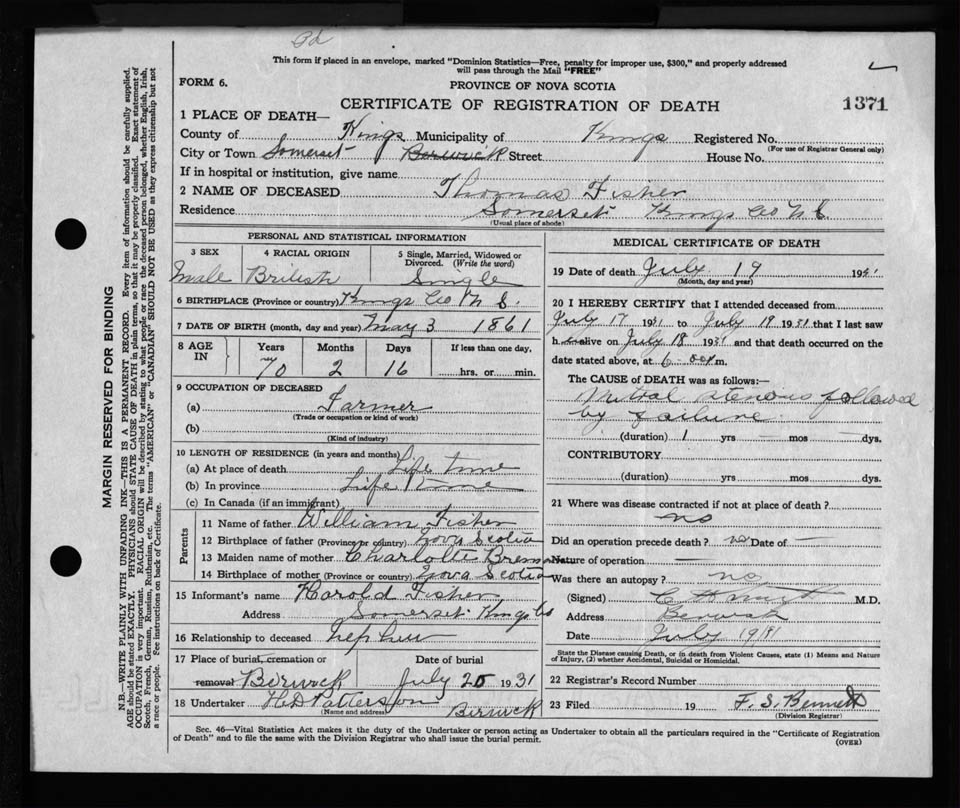 Pd
This form if placed in an envelope, marked "Dominion Statistics—Free, penalty for improper use, $300," and properly addressed
will pass through the Mail "FREE"
FORM 6.
PROVINCE OF NOVA SCOTIA
CERTIFICATE OF REGISTRATION OF DEATH
1371
1 PLACE OF DEATH—
County of Kings Municipality of Kings Registered No.
(For use of Registrar General only)
City or Town Somerset Berwick Street House No.
If in hospital or institution, give name
2 NAME OF DECEASED Thomas Fisher
Residence Somerset Kings Co N S
(Usual place of abode)
PERSONAL AND STATISTICAL INFORMATION
3 SEX 4 RACIAL ORIGIN 5 Single, Married, Widowed or
Divorced. (Write the word)
Male British Single
6 BIRTHPLACE (Province or country) Kings Co N S.
7 DATE OF BIRTH (month, day and year) May 3 1861
8 AGE IN Years Months Days If less than one day.
70 2 16 hrs. or min.
9 OCCUPATION OF DECEASED
(a) Farmer
(Trade or occupation or kind of work)
(b)
(Kind of industry)
10 LENGTH OF RESIDENCE (in years and months)
(a) At place of death Life time
(b) In province Life time
(c) In Canada (if an immigrant)
Parents
11 Name of father William Fisher
12 Birthplace of father (Province or country) Nova Scotia
13 Maiden name of mother Charlotte
14 Birthplace of mother (Province or country) Nova Scotia
15 Informant's name Harold Fisher
Address Somerset Kings Co
16 Relationship to deceased nephew
17 Place of burial, cremation or Date of burial
removal Berwick July 20 1931
18 Undertaker H D Patterson Berwick
(Name and address)
MEDICAL CERTIFICATE OF DEATH
19 Date of death July 19 1931
(Month, day and year)
20 I HEREBY CERTIFY that I attended deceased from
July 17 1931 to July 19 1931 that I last saw
h alive on July 18 1931 and that death occurred on the
date stated above, at 6 m.
The CAUSE OF DEATH was as follows:—
Mitral stenosis followed
by failure
(duration) 1 yrs — mos — dys.
CONTRIBUTORY
(duration) yrs. mos. dys.
21 Where was disease contracted if not at place of death?
no
Did an operation precede death? no Date of —
Nature of operation —
Was there an autopsy? no
(Signed) M.D.
Address Berwick
Date July 19/31
State the Disease causing Death, or in death from Violent Causes, state (1) Means and Nature
of Injury, (2) whether Accidental, Suicidal or Homicidal.
22 Registrar's Record Number
23 Filed 19 F. S. Bennett
(Division Registrar)
Sec. 46—Vital Statistics Act makes it the duty of the Undertaker or person acting as Undertaker to obtain all the particulars required in the "Certificate of Registration
of Death" and to file the same with the Division Registrar who shall issue the burial permit.
(OVER)
MARGIN RESERVED FOR BINDING
N.B.—WRITE PLAINLY WITH UNFADING INK—THIS IS A PERMANENT RECORD. Every item of information should be carefully supplied.
AGE should be stated EXACTLY. PHYSICIANS should STATE CAUSE OF DEATH in plain terms, so that it may be properly classified. Exact statement of
OCCUPATION is very important. RACIAL ORIGIN will be described by stating to what people or race the deceased person belonged, whether English, Irish,
Scotch, French, German, Russian, Ruthenian, etc. The terms "AMERICAN" or "CANADIAN" SHOULD NOT BE USED as they express citizenship but not
a race or people. See instructions on back of Certificate.